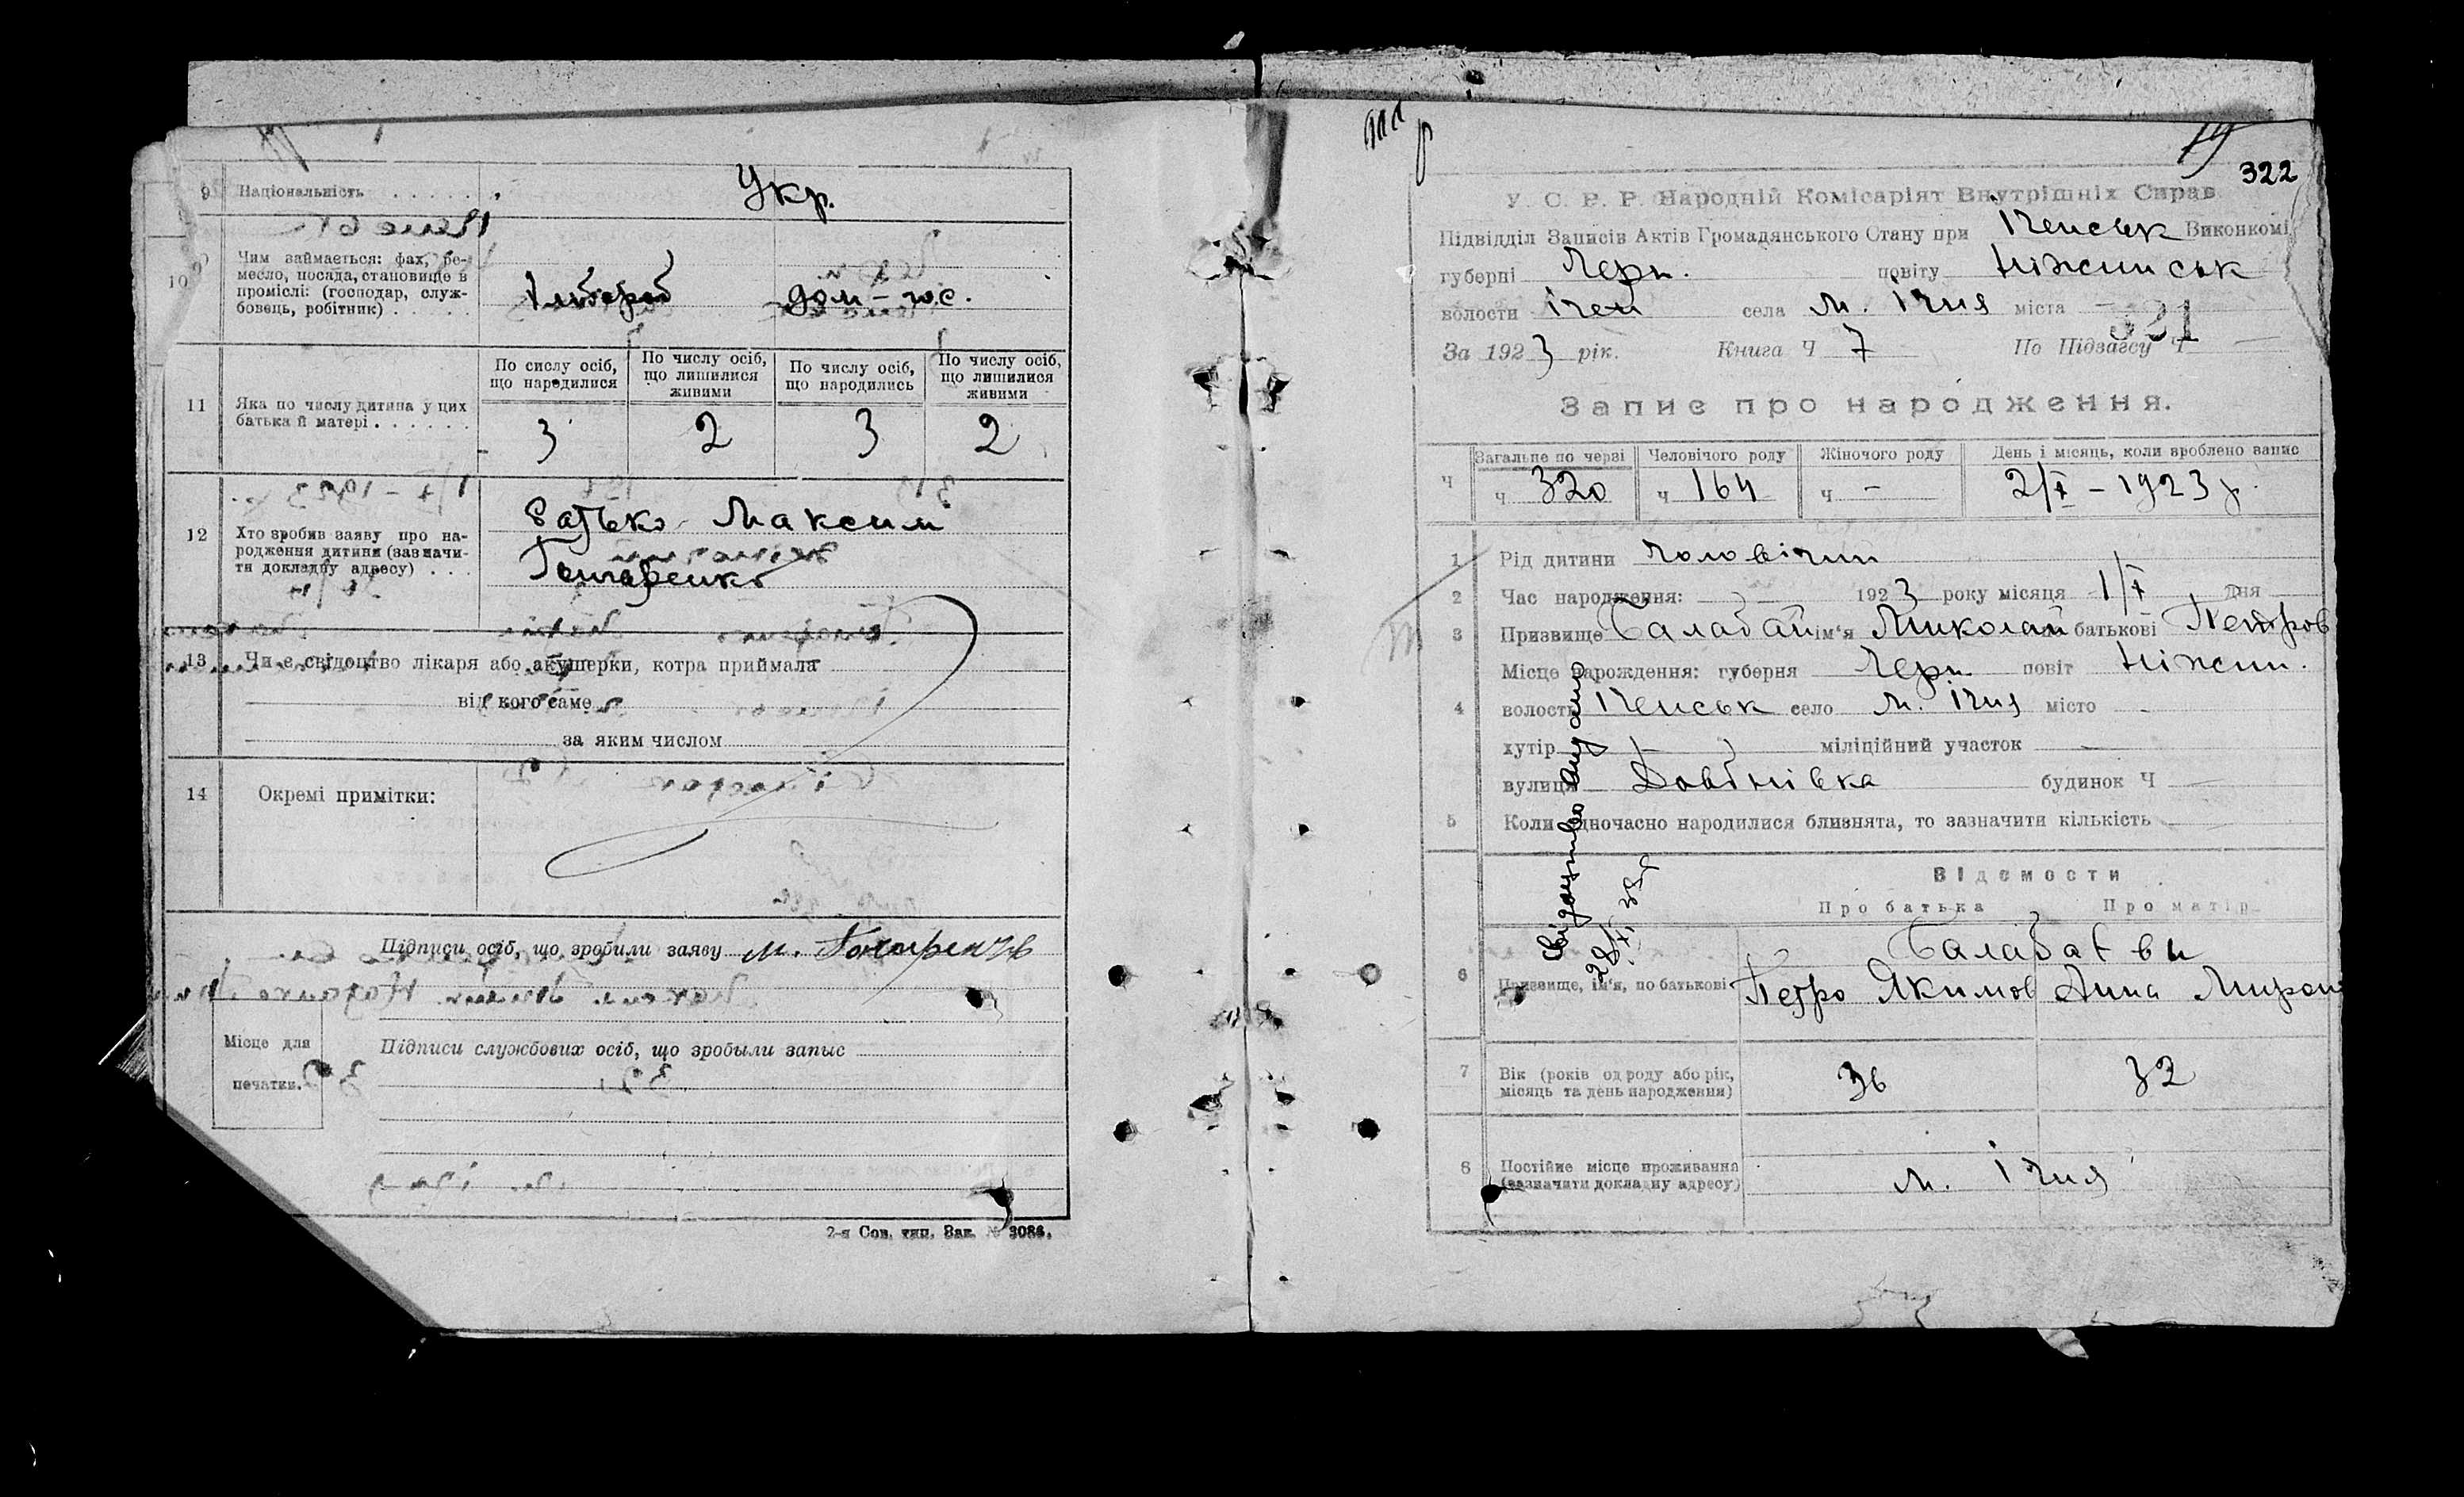 9 Національність . . . . . . . Укр.
10 Чим займається: фах, ре-
месло, посада, становище в
проміслі: (господар, служ-
бовець, робітник) . . . . . Хлібороб дом-гос.
По сислу осіб, що народилися
По числу осіб, що лишилися живими
По числу осіб, що народились
По числу осіб, що лишилися живими
11 Яка по числу дитина у цих
батька й матері . . . . . . 3 2 3 2
12 Хто зробив заяву про на-
родження дитини (зазначи-
ти докладну адресу) . . .
батько Максим
Гончаренко
13 Чи є свідоцтво лікаря або акушерки, котра приймала
від кого саме
за яким числом
14 Окремі примітки:
Підписи осіб, що зробили заяву М.
Місце для
печатки.
Підписи службових осіб, що зробыли запыс
2-я Сов. тип. Зак. № 3086.
19
322
У. С. Р. Р. Народній Комісаріят Внутрішніх Справ
Підвідділ Записів Актів Громадянського Стану при Іченськ Виконкомі
губерні Черн. повіту Ніжинськ
волости Ічен села м. Ічня міста —
321
За 1923 рік. Книга Ч 7 По Підзагсу Ч —
Запис про народження.
Ч Загальне по черзі Человічого роду Жіночого роду День і місяць, коли зроблено запис
ч 320 ч 164 ч — 2/X – 1923 р.
1 Рід дитини чоловічий
2 Час народження: 1923 року місяця 1/X дня
3 Призвище Балабай ім'я Миколай батькові Петров
4 Місце нарождення: губерня Черн. повіт Ніжин.
волость Іченськ село м. Ічня місто —
хутір — міліційний участок —
вулиця будинок Ч —
5 Коли одночасно народилися близнята, то зазначити кількість
Відомости
Про батька Про матір
6 Призвище, ім'я, по батькові
Петро Якимов Анна Мирон
7 Вік (років од роду або рік,
місяць та день народження) 36 32
8 Постійне місце проживання
(зазначити докладну адресу) м. Ічня
Свідоцтво видано